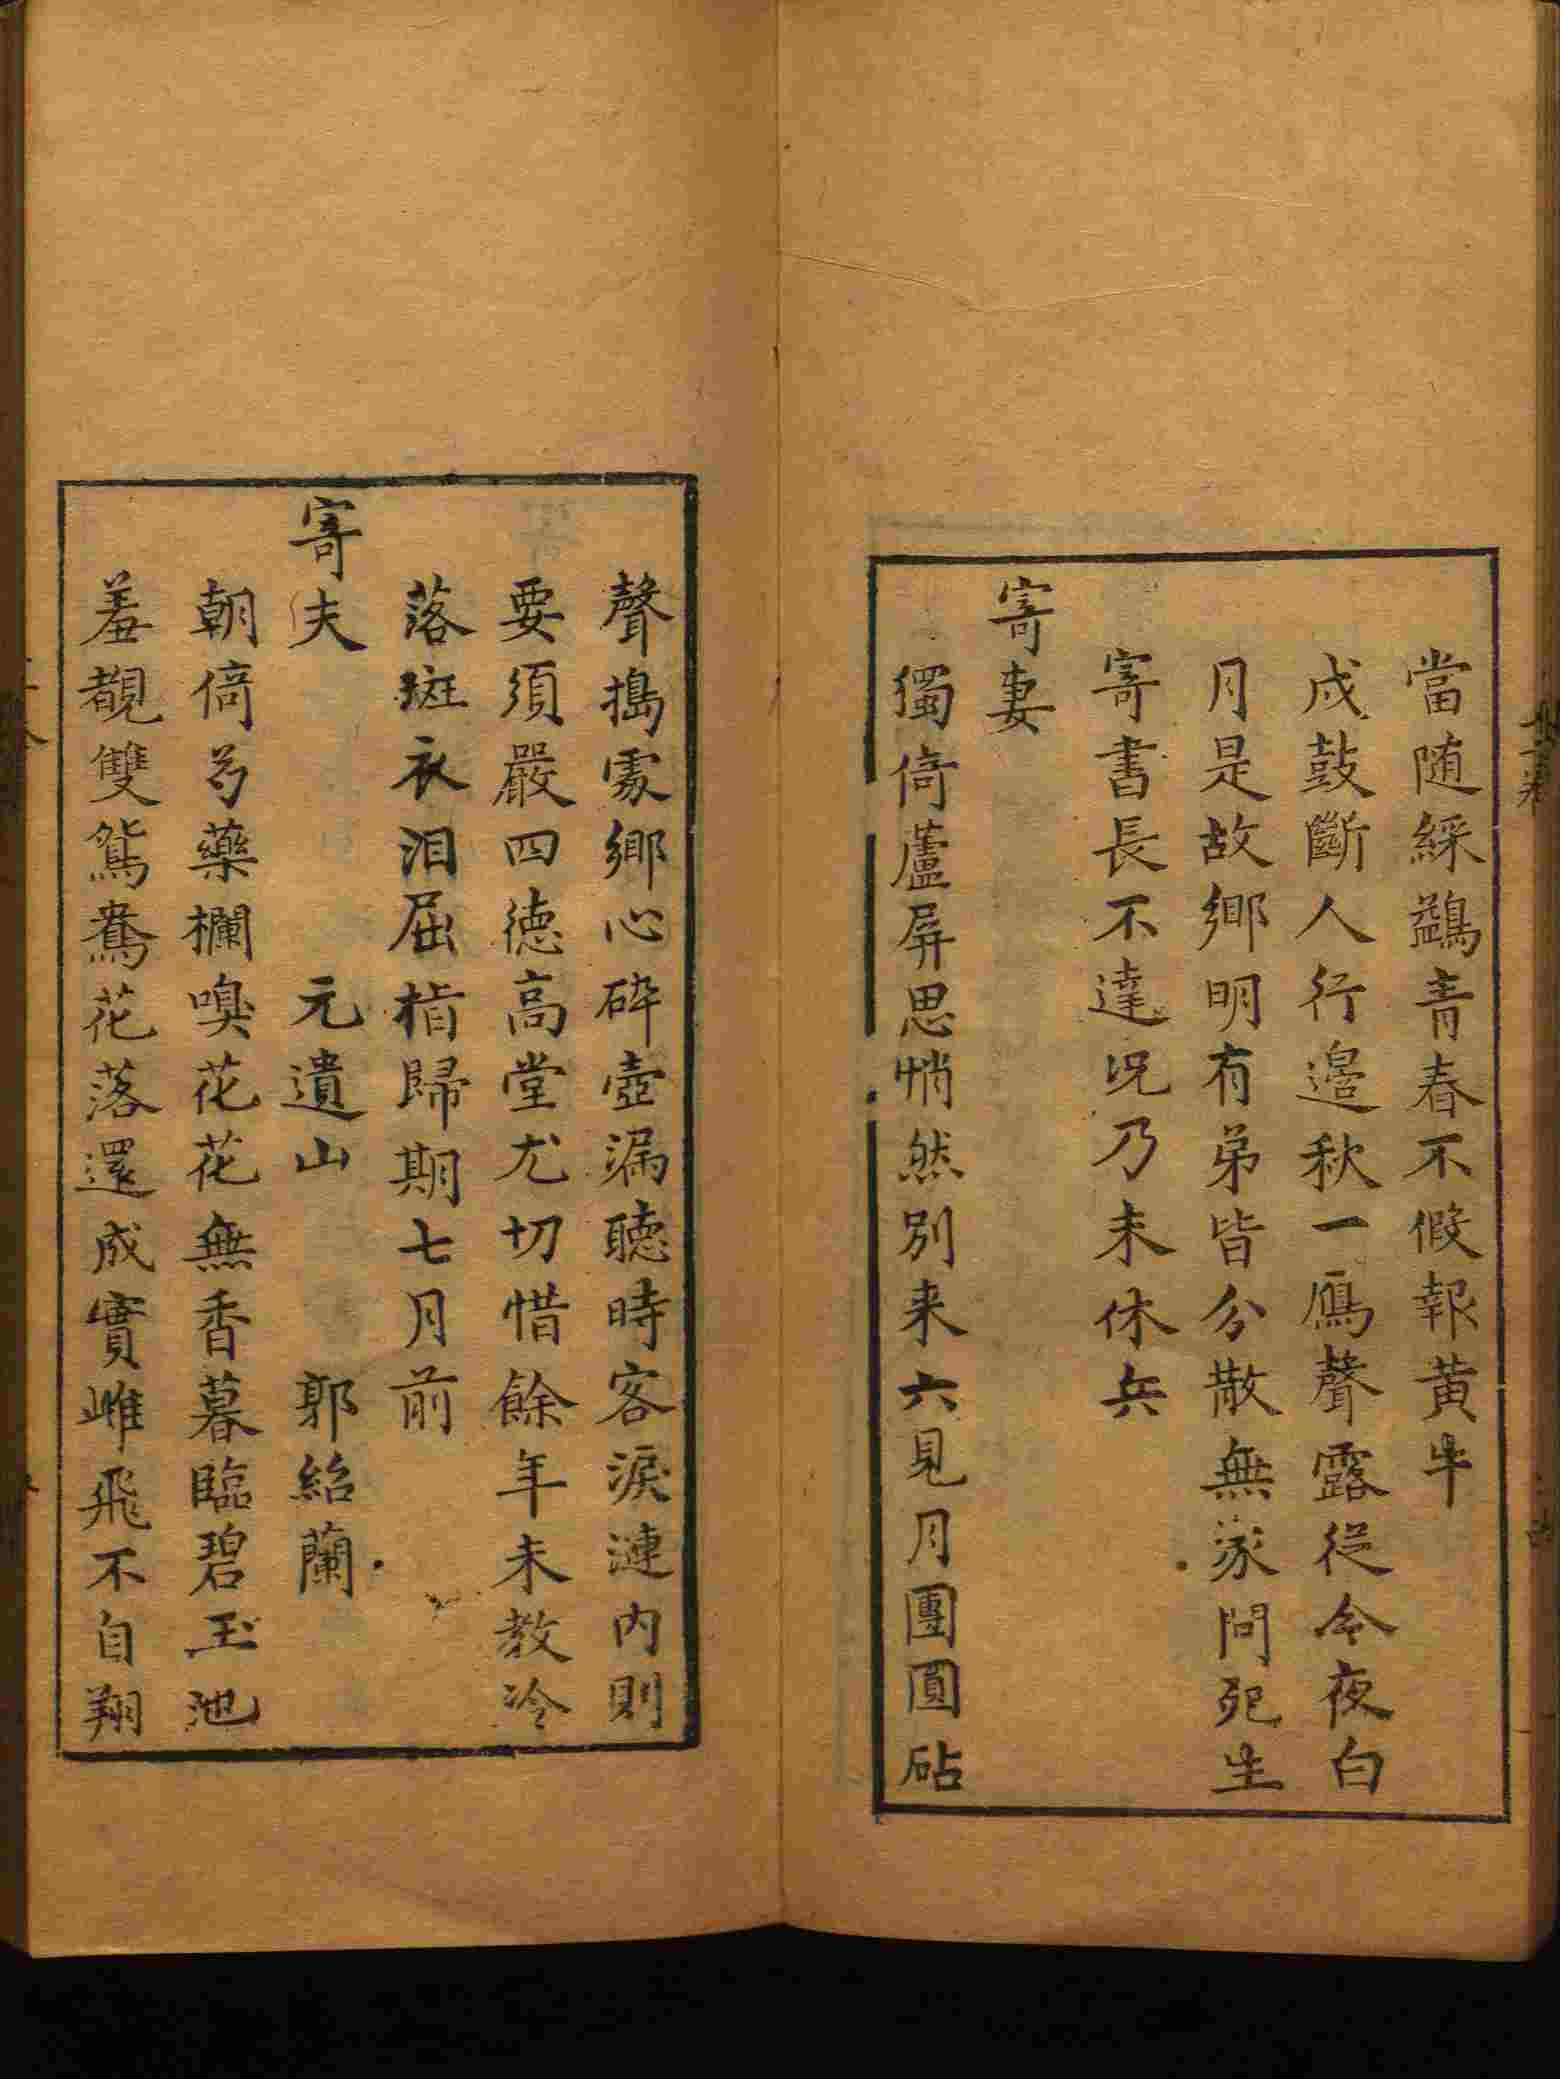 當随綵鷁青春不假報黄牛
戍鼓斷人行邉秋一鴈聲露從今夜白
月是故鄉明有弟皆分散無家問死生
寄書長不達况乃未休兵
寄妻
獨倚蘆屏思悄然別来六見月團圓砧
聲搗處鄉心碎壺漏聽時客淚漣内則
要須嚴四德高堂尤切惜餘年未教冷
落斑衣泪屈指歸期七月前
寄夫 元遺山 郭紹蘭
朝倚芍藥欄嗅花花無香暮臨碧玉池
羞覩雙鴛鴦花落還成實雌飛不自翔